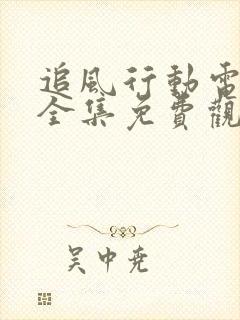 追风行動電
全集免費觀
吴中尧